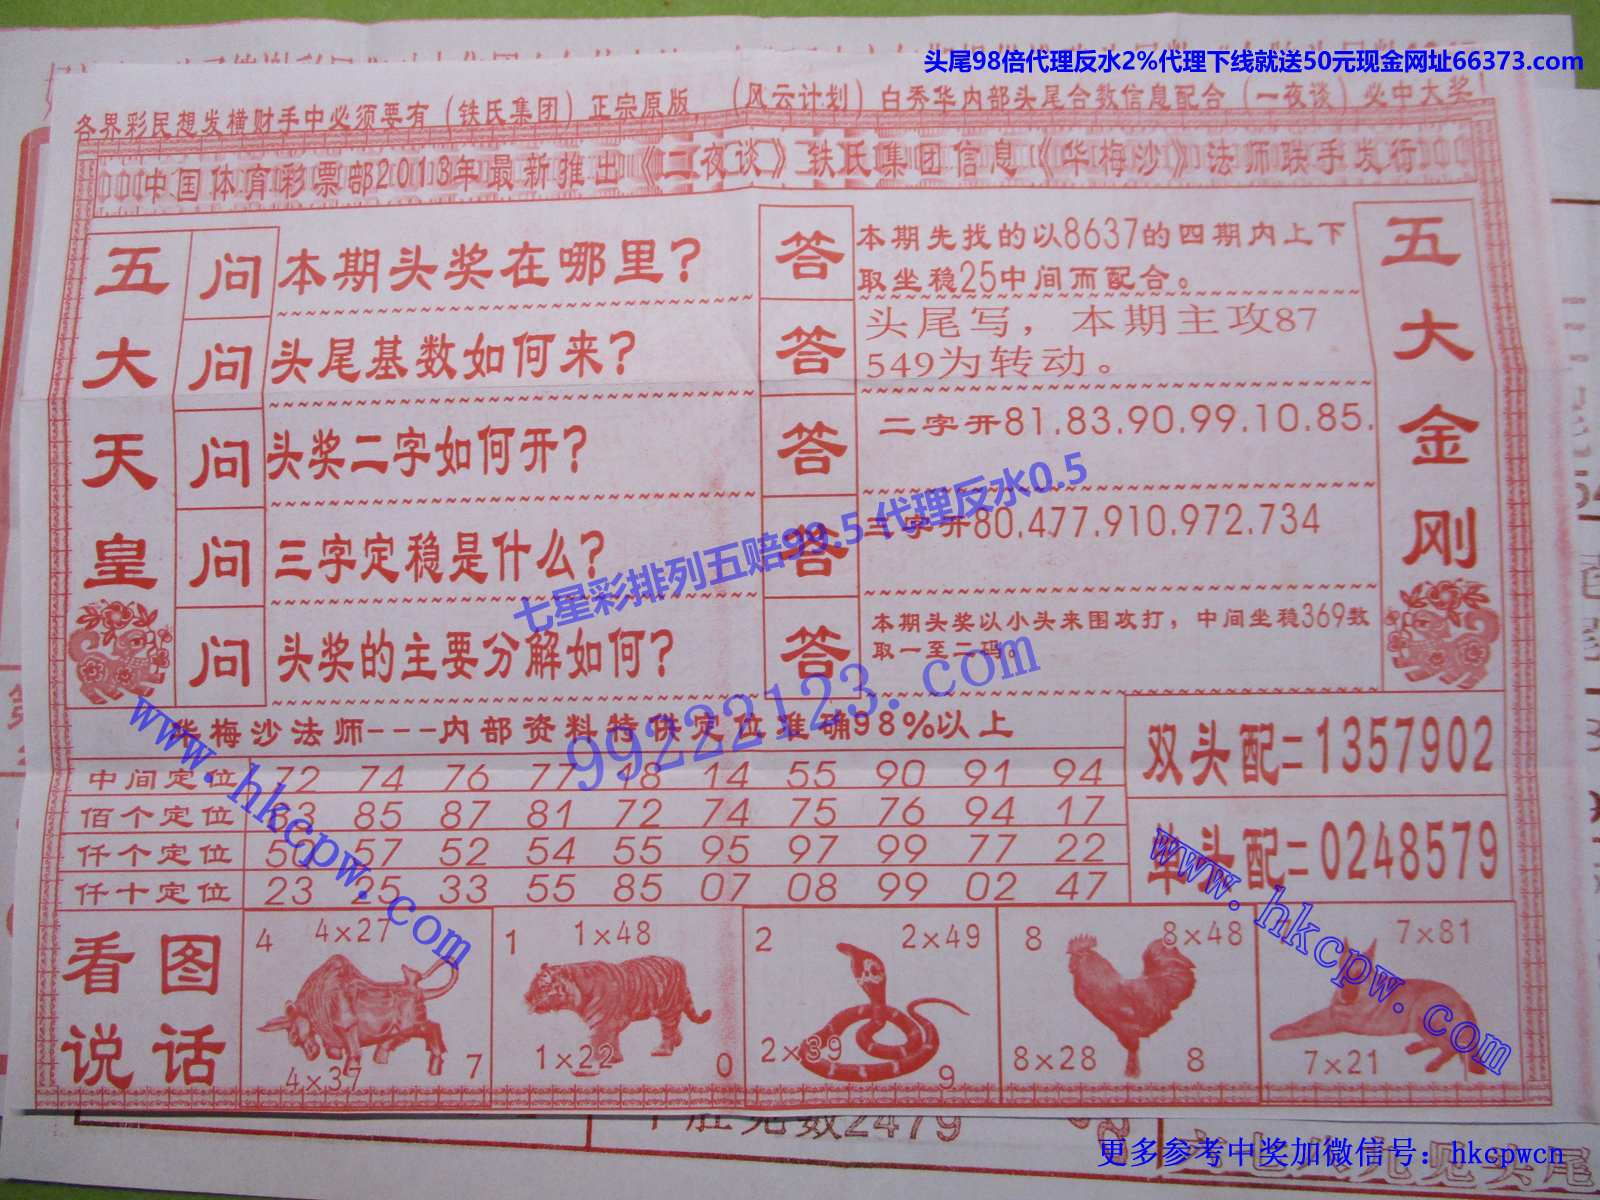 头尾98倍代理反水2%代理下线就送50元现金网址66373.com
各界彩民想发横财手中必须要有（铁氏集团）正宗原版，（风云计划）白秀华内部头尾合数信息配合（一夜谈）必中大奖！
中国体育彩票部2013年最新推出《二夜谈》铁氏集团信息《华梅沙》法师联手发行
五大天皇
问 本期头奖在哪里？
答 本期先找的以8637的四期内上下
取坐稳25中间而配合。
问 头尾基数如何来？
答 头尾写，本期主攻87
549为转动。
问 头奖二字如何开？
答 二字开81.83.90.99.10.85.
问 三字定稳是什么？
答 三字开80.477.910.972.734
问 头奖的主要分解如何？
答 本期头奖以小头来围攻打，中间坐稳369数
取一至二码。
五大金刚
七星彩排列五赔99.5代理反水0.5
99222123.com
www.hkcpw.com
华梅沙法师---内部资料特供定位准确98%以上
中间定位 72 74 76 77 18 14 55 90 91 94
佰个定位 83 85 87 81 72 74 75 76 94 17
仟个定位 50 57 52 54 55 95 97 99 77 22
仟十定位 23 25 33 55 85 07 08 99 02 47
双头配=1357902
单头配=0248579
www.hkcpw.com
看图说话
4 4×27
4×37 7
1 1×48
1×22 0
2 2×49
2×39 9
8 8×48
8×28 8
7×81
7×21
数2479
更多参考中奖加微信号：hkcpwcn